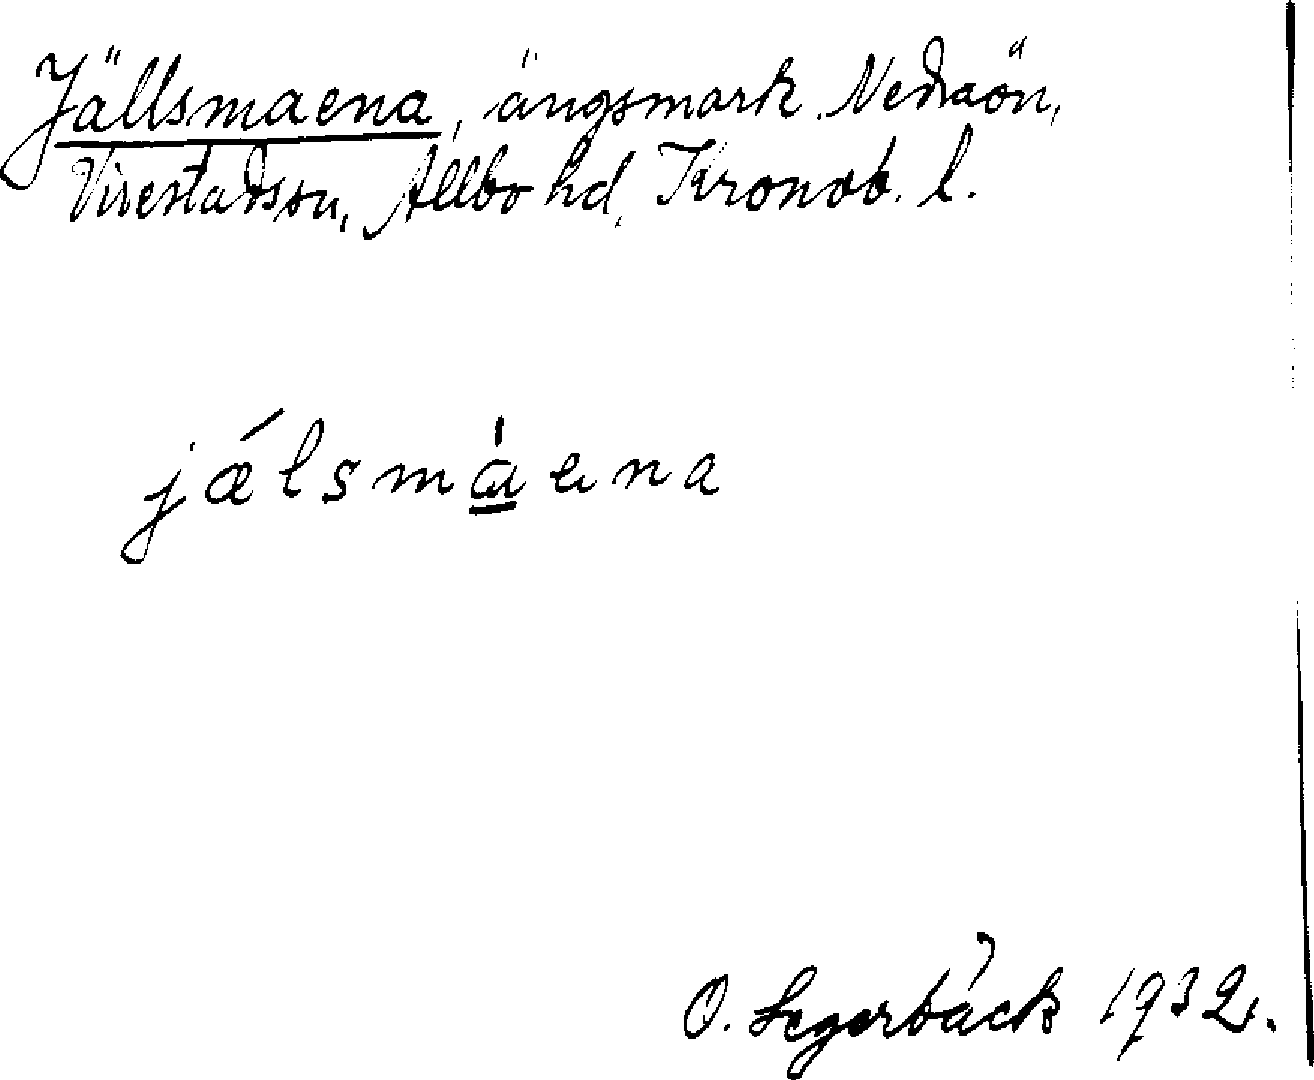 Jällsmaena, ängsmark, Nedraön,
Virestadssn, Allbo hd, Kronob. l.
jǽlsmɑ́ena
O. Segerbäck 1932.